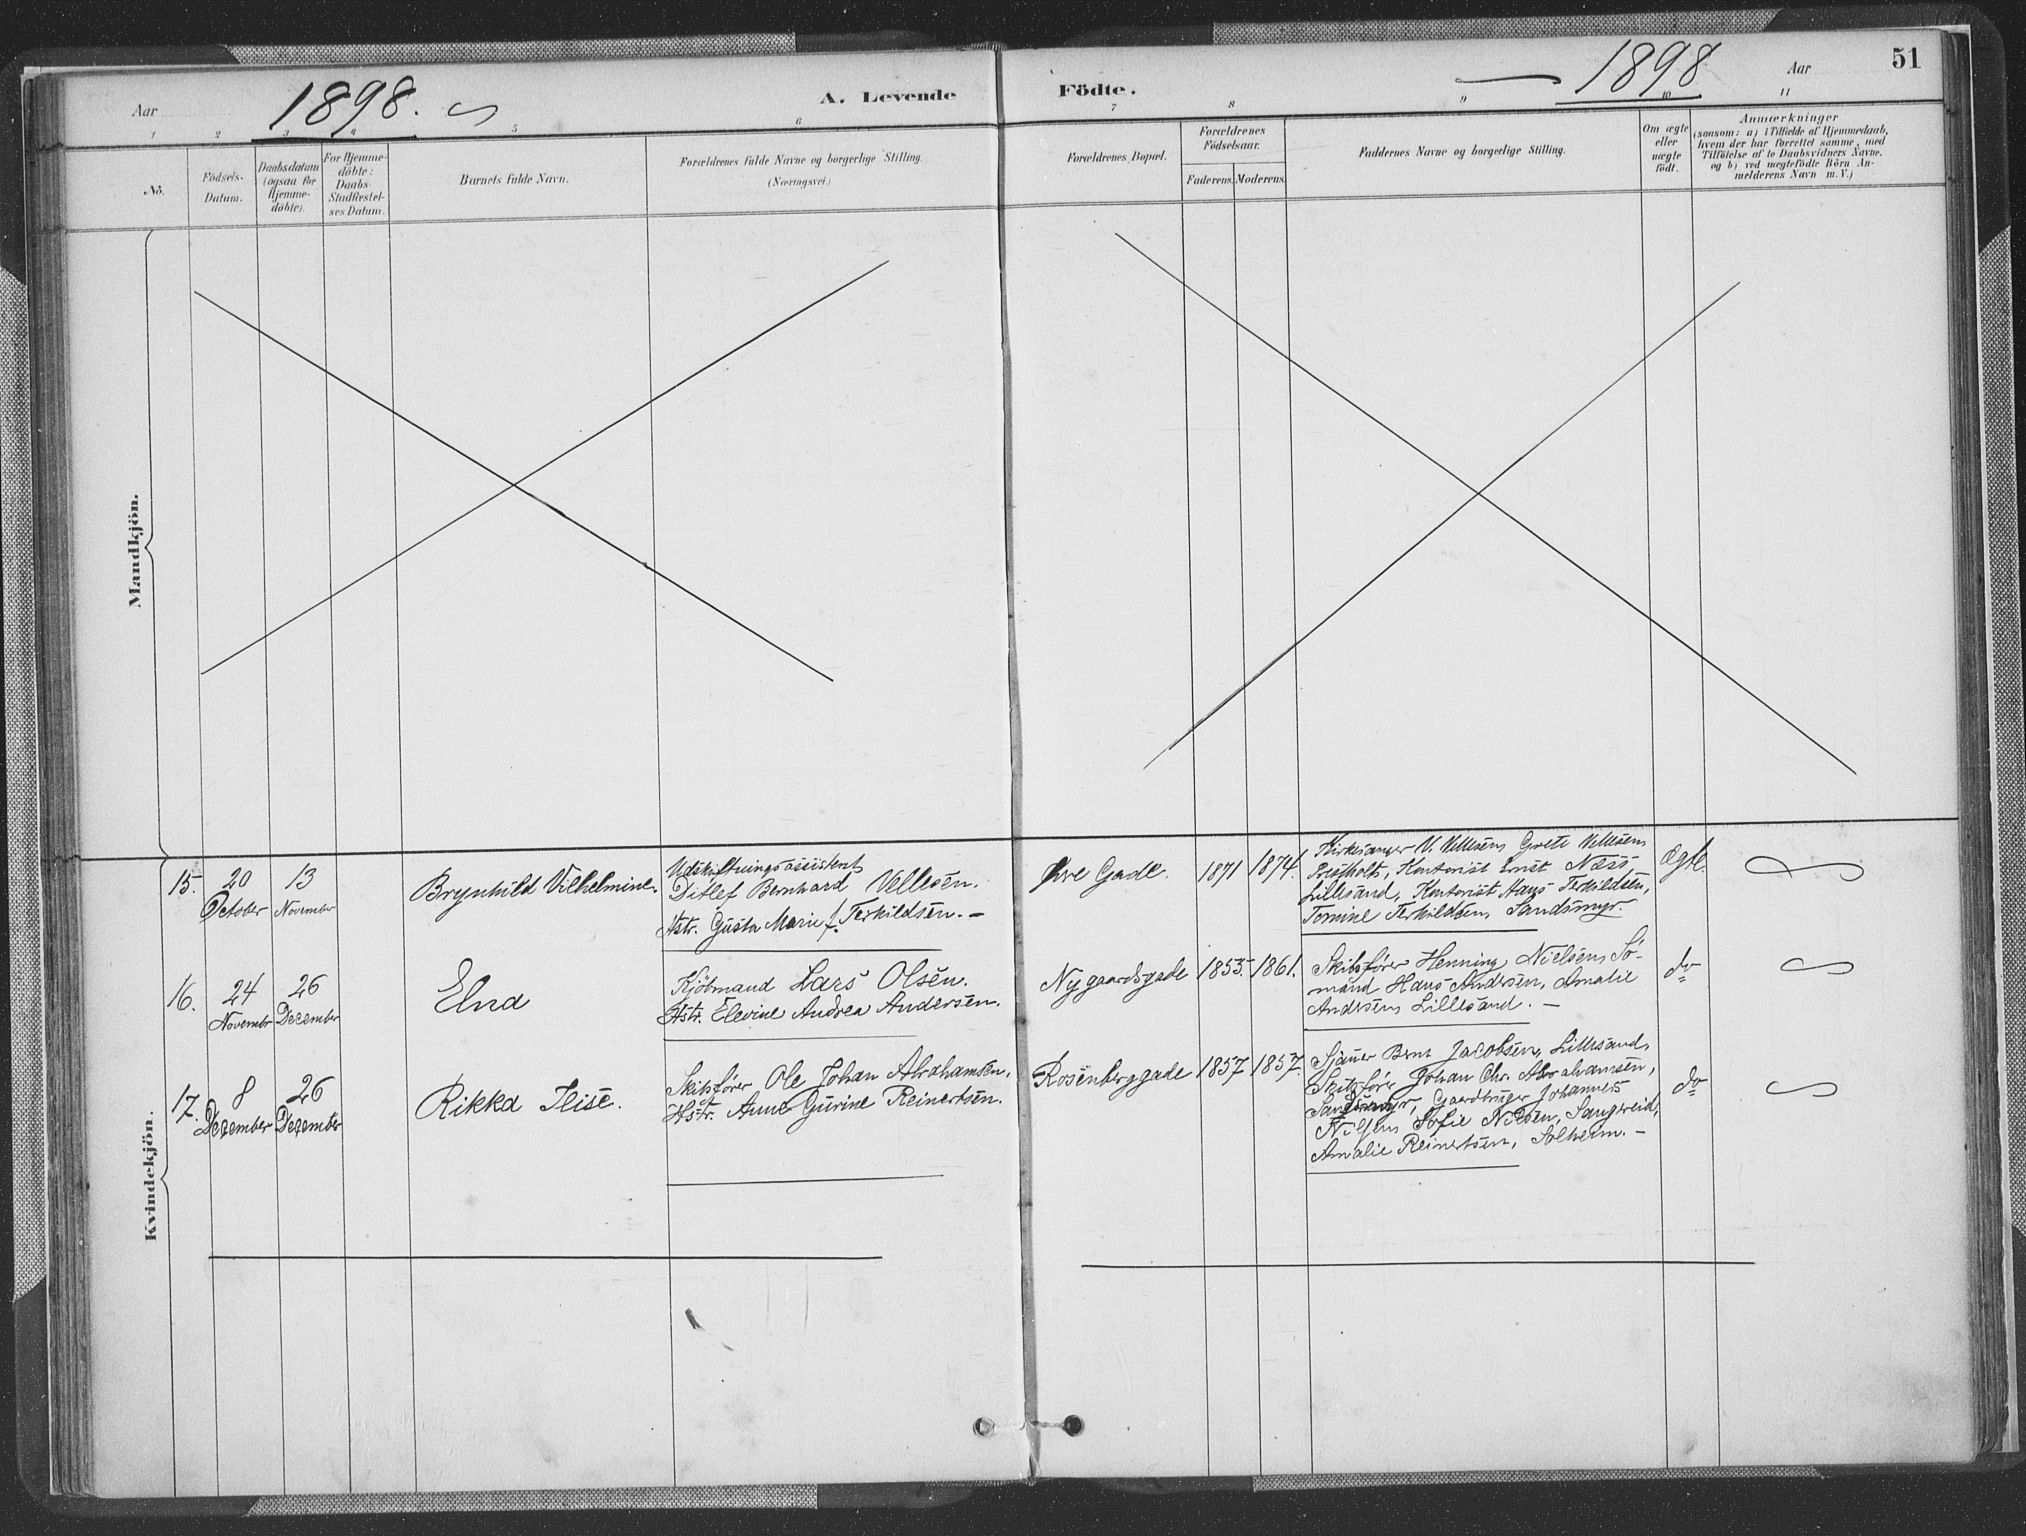 Aar 1898.
A. Levende Födte.
1898 Aar
51
1 2 3 4 5 6 7 8 9 10 11
No.
Födsels-
Datum.
Daabsdatum
(ogsaa for
Hjemme-
döbte).
For Hjemme-
döbte:
Daabs-
Stadfæstel-
ses Datum.
Barnets fulde Navn.
Forældrenes fulde Navne og borgerlige Stilling.
(Næringsvei.)
Forældrenes Bopæl.
Forældrenes
Födselsaar.
Faderens. Moderens.
Faddernes Navne og borgerlige Stilling.
Om ægte
eller
uægte
födt.
Anmærkninger
(saasom: a) i Tilfælde af Hjemmedaab,
hvem der har forrettet samme, med
Tilföielse af to Daabsvidners Navne.
og b) ved uægtefödte Börn An-
melderens Navn m. V.)
Mandkjön.
Kvindekjön.
15.
20
October
13
November
Brynhild Vilhelmine.
Udskiftningsassistent
Ditlef Bernhard Vellesen.
Hstr. Gusta Marie f. Terkildsen. —
Øvre Gade.
1871
1874.
Kirkesanger V. Vellesen, Grete Vellesen
Kontorist Ernst Næss
Lillesand, Kontorist Hans Terkildsen,
Tomine Terkildsen, Sandsmyr.
Ægte.
16.
24
Novembr
26
December
Elna
Kjöbmand Lars Olsen.
Hstr. Elevine Andrea Andersen.
Nygaardsgade
1855.
1861.
Skibsfører Henning Nielsen, Sö-
mand Hans Andersen, Amalie
Andersen, Lillesand. —
do
17.
8
December
26
December
Rikka Ilise.
Skibsfører Ole Johan Abrahamsen,
Hstr. Anne Gurine Reinertsen.
Rosenberggade
1857
1857.
Sjauer Bernt Jacobsen, Lillesand,
Skibsfører Johan Chr. Abrahamsen,
Sandsmyr, Gaardbruger Johannes
Nilsen, Sofie Nilsen, Sangereid,
Amalie Reinertsen, Solheim. —
do